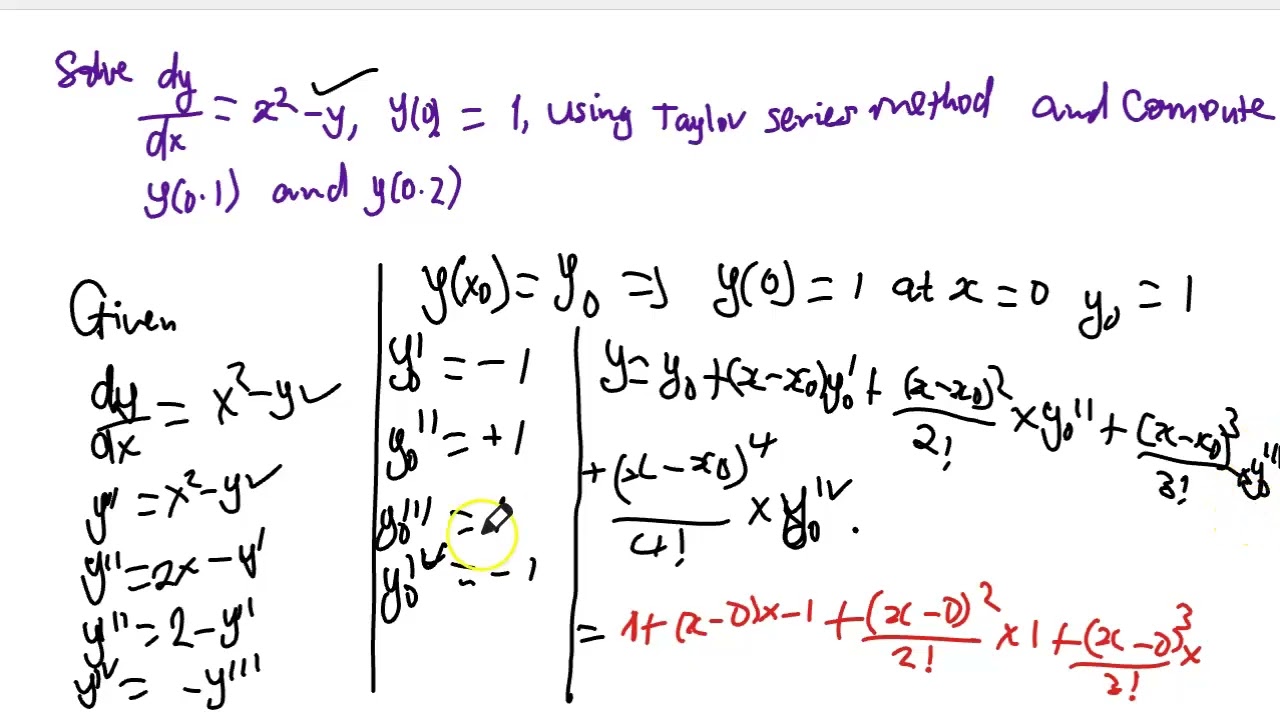 Solve dy/dx = x² - y, y(0) = 1, using Taylor series method and compute
y(0.1) and y(0.2)
y(x₀) = y₀ ⇒ y(0) = 1 at x = 0 y₀ = 1
Given
dy/dx = x² - y
y' = x² - y
y'' = 2x - y'
y'' = 2 - y'
yⁱᵛ = -y'''
y₀' = -1
y₀'' = +1
y₀''' =
y₀ⁱᵛ = -1
y = y₀ + (x - x₀)y₀' + (x - x₀)²/2! × y₀'' + (x - x₀)³/3! × y₀'''
+ (x - x₀)⁴/4! × y₀ⁱᵛ.
= 1 + (x - 0) × -1 + (x - 0)²/2! × 1 + (x - 0)³/3! ×